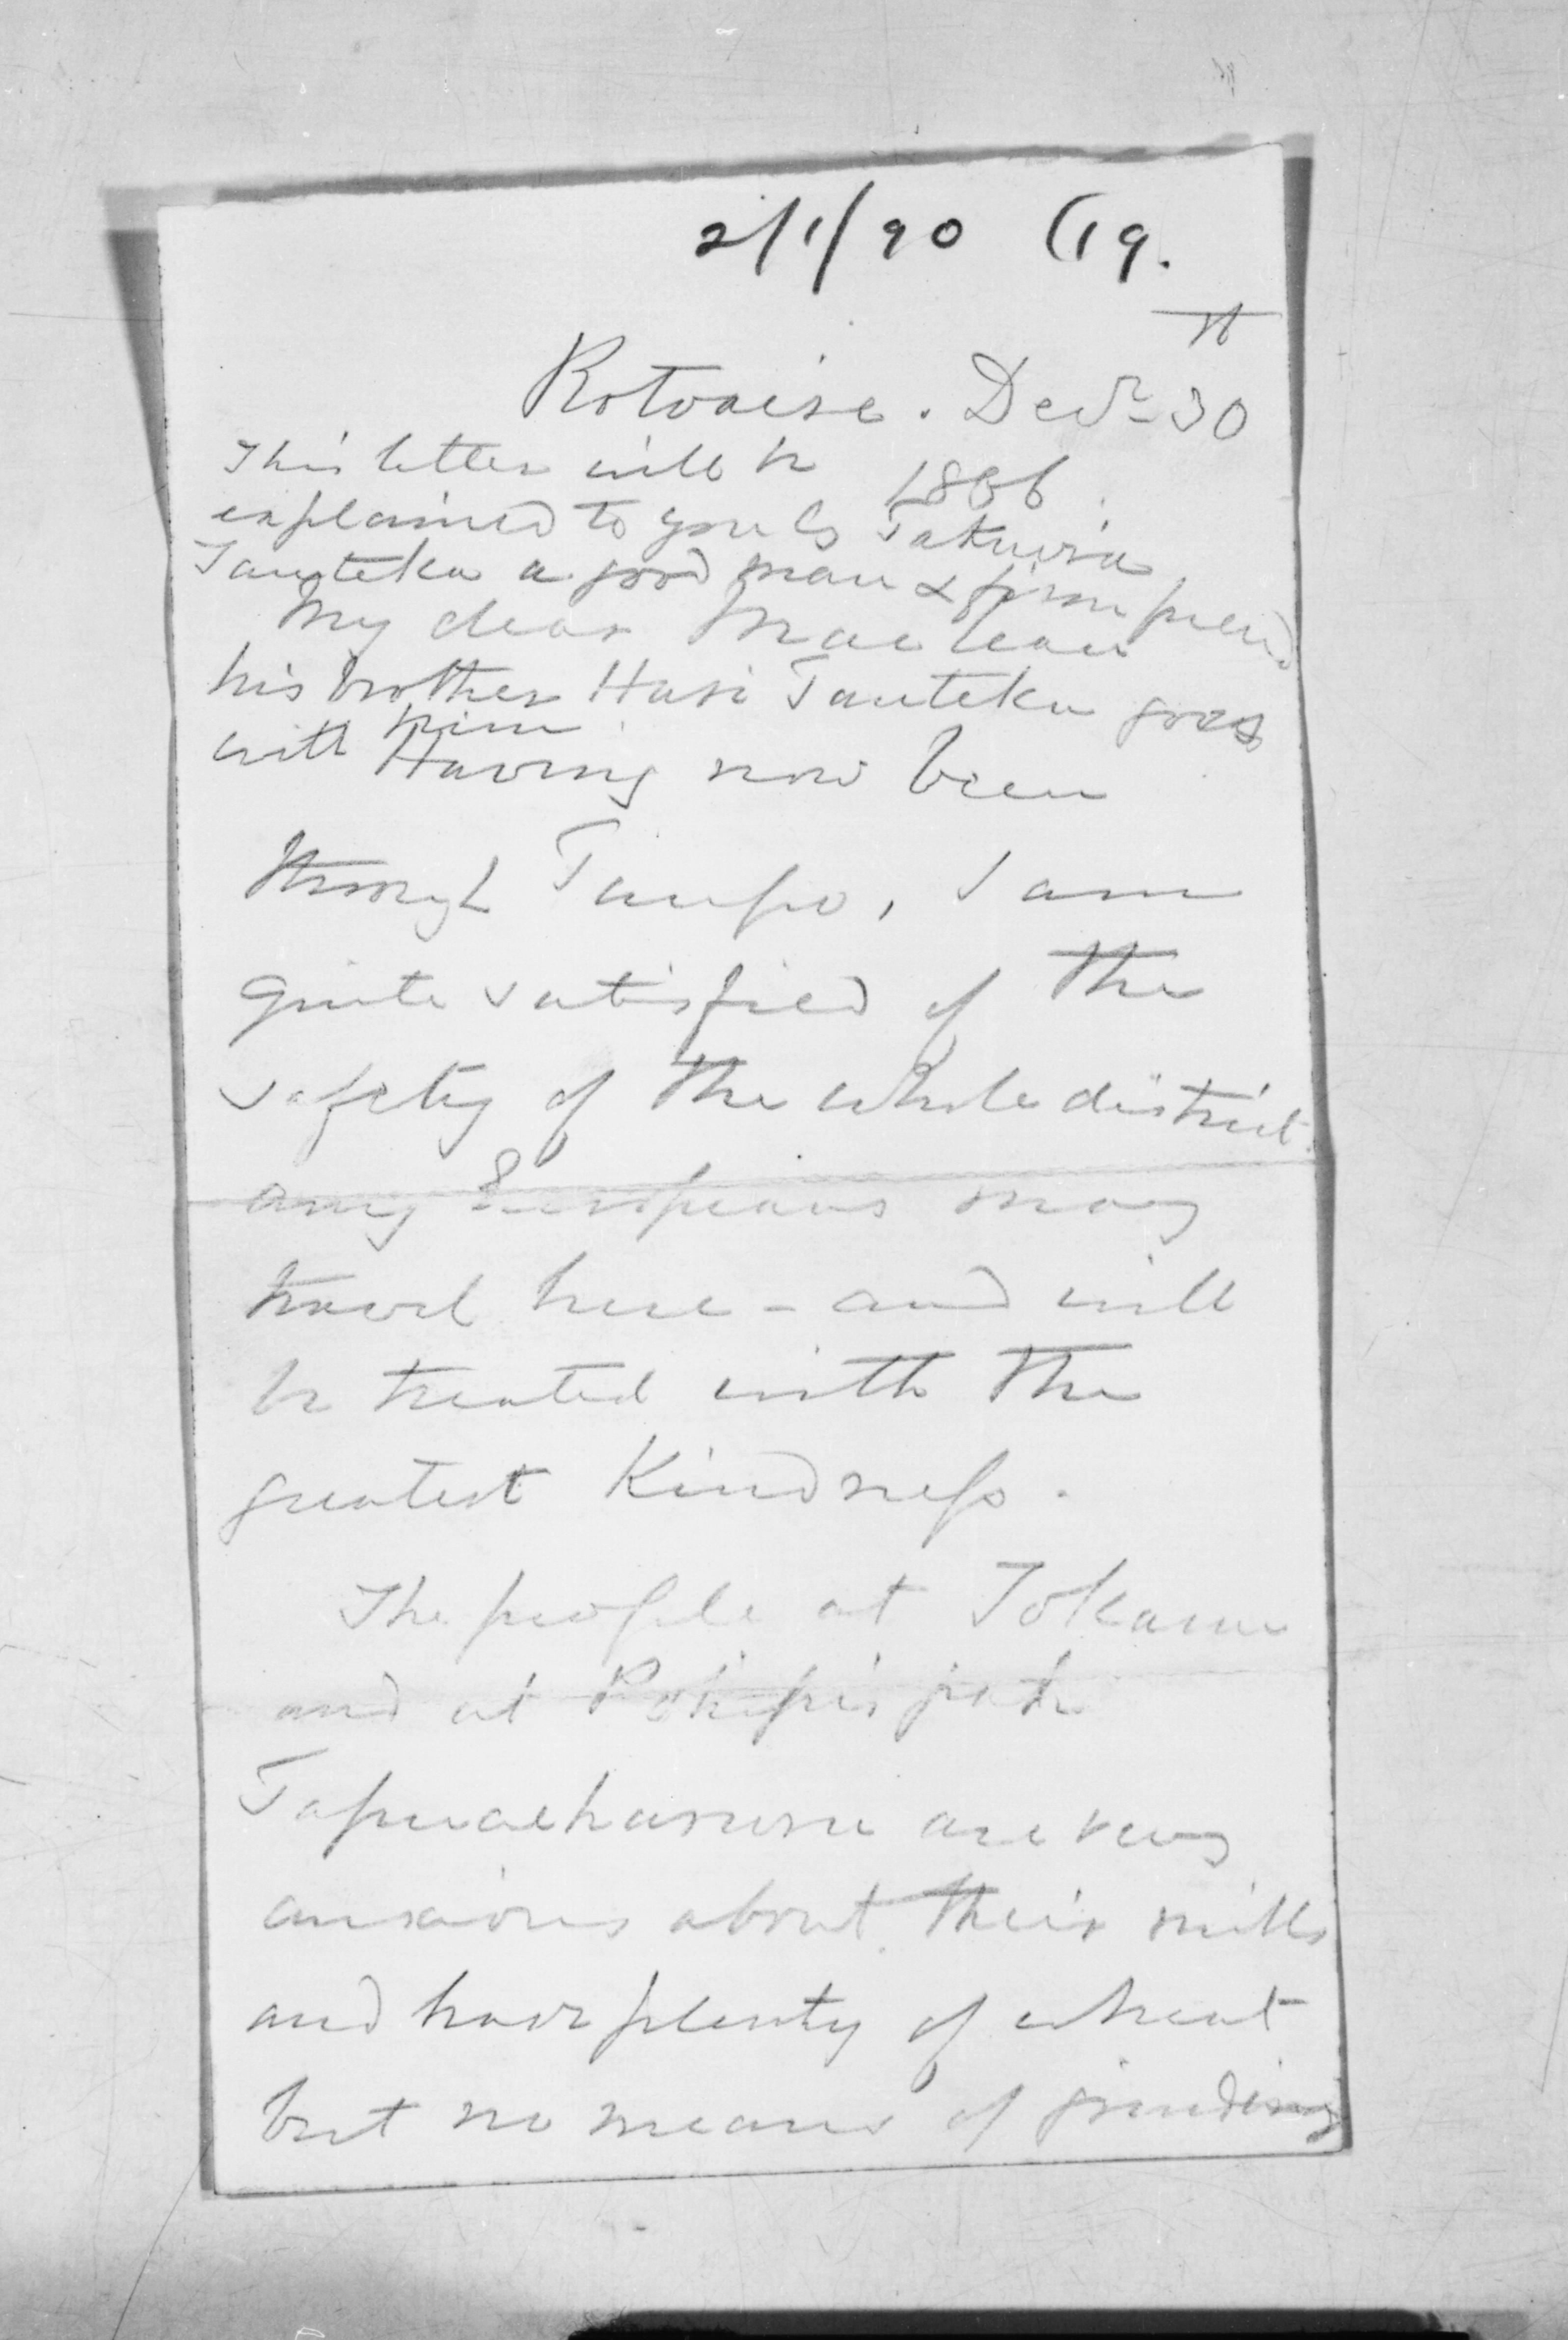 2/1/90 (19.
Rotoaira. Decr 30th
1866.
This letter will be
explained to you by Takuira
Tauteka a good man & firm friend
his brother Hari Tauteka goes
with him
My dear MacLean
Having now been
through Taupo, I am
quite satisfied of the
safety of the whole district.
any Europeans may
travel here - and will
be treated with the
greatest Kindness.
The people at Tokanu
and at Poihipi's pah
Tapuaeharuru are very
anxious about their mills
and have plenty of wheat
but no means of grinding